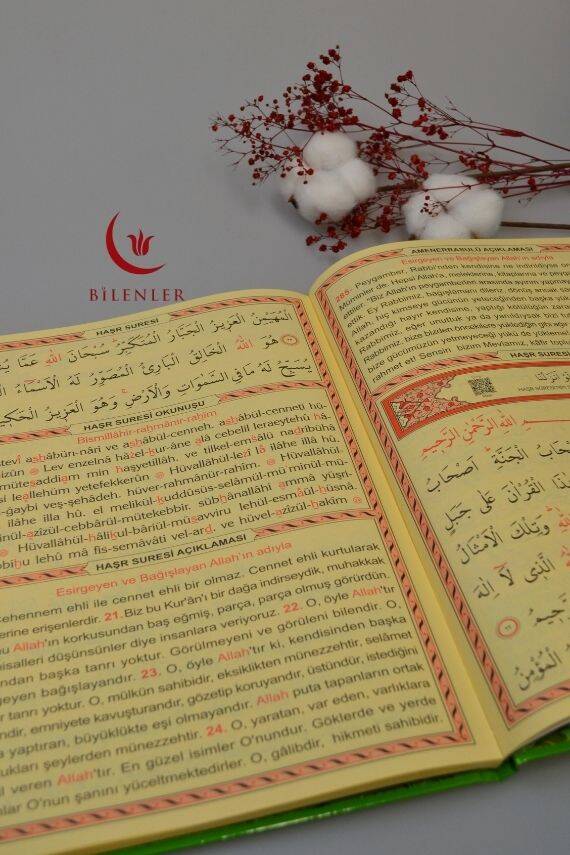 BİLENLER
HAŞR SURESİ
الْمُهَيْمِنُ الْعَزِيزُ الْجَبَّارُ الْمُتَكَبِّرُ سُبْحَانَ اللّٰهِ عَمَّا
هُوَ اللّٰهُ الْخَالِقُ الْبَارِئُ الْمُصَوِّرُ لَهُ الْاَسْمَاءُ
يُسَبِّحُ لَهُ مَا فِي السَّمٰوَاتِ وَالْاَرْضِ وَهُوَ الْعَزِيزُ الْحَكِيمُ
HAŞR SURESİ OKUNUŞU
Bismillâhir-rahmânir-rahîm
ashâbün-nâri ve ashâbül-cenneh, ashâbül-cenneti hü-
Lev enzelnâ hâzel-kur-âne alâ cebelil leraeytehû hâ-
mütesaddiam min haşyetillâh, ve tilkel-emsâlü nadribühâ
leallehüm yetefekkerûn Hüvallâhül-lezî lâ ilâhe illâ hû,
-ğaybi veş-şehâdeh, hüver-rahmânür-rahîm. Hüvallâhül-
ilâhe illâ hû, el melikül-kuddûsüs-selâmül-mü'minül-mü-
-azîzül-cebbârül-mütekebbir, sübhânallâhi ammâ yüşri-
Hüvallâhül-hâlikul-bâriül-müsavviru lehül-esmâül-hüsnâ,
lehû mâ fis-semâvâti vel-ard, ve hüvel-azîzül-hakîm
HAŞR SURESİ AÇIKLAMASI
Esirgeyen ve Bağışlayan Allah'ın adıyla
ehennem ehli ile cennet ehli bir olmaz. Cennet ehli kurtularak
erine erişenlerdir. 21. Biz bu Kur'an'ı bir dağa indirseydik, muhakkak
Allah'ın korkusundan baş eğmiş, parça, parça olmuş görürdün.
misalleri düşünsünler diye insanlara veriyoruz. 22. O, öyle Allah'tır
ndan başka tanrı yoktur. Görülmeyeni ve görüleni bilendir. O,
geyen bağışlayandır. 23. O, öyle Allah'tır ki, kendisinden başka
tanrı yoktur. O, mülkün sahibidir, eksiklikten münezzehtir, selâmet
ndir, emniyete kavuşturandır, gözetip koruyandır, üstündür, istediğini
yaptıran, büyüklükte eşi olmayandır. Allah puta tapanların ortak
ukları şeylerden münezzehtir. 24. O, yaratan, var eden, varlıklara
il veren Allah'tır. En güzel isimler O'nundur. Göklerde ve yerde
nlar O'nun şanını yüceltmektedirler. O, gâlibdir, hikmeti sahibidir.
AMENERRASULÜ AÇIKLAMASI
Esirgeyen ve Bağışlayan Allah'ın adıyla
285. Peygamber, Rabbi'nden kendisine ne indirildiyse
Müminler de. Hepsi Allah'a, meleklerine,
ettiler. "Biz Allah'ın peygamberleri arasında ayırım yapmayız
Ey Rabbimiz, bağışlamanı dileriz, dönüş ancak
Allah, hiç kimseye gücünün yeteceğinden başka
kazandığı hayır kendisine,
Rabbimiz, eğer unuttuk ya da yanıldıysak bizi
Rabbimiz, bize bizden öncekilere yüklediğin gibi ağır
bize gücümüzün yetmeyeceği yükü de
rahmet et! Sensin bizim Mevlamız, kâfir
HAŞR SURESİ
اللّٰهِ الرَّحْمٰنِ الرَّحِيمِ
اَصْحَابُ الْجَنَّةِ اَصْحَابُ
هٰذَا الْقُرْاٰنَ عَلٰى جَبَلٍ
اللّٰهِ وَتِلْكَ الْاَمْثَالُ
الَّذِي لَا اِلٰهَ
الْمُؤْمِنُ